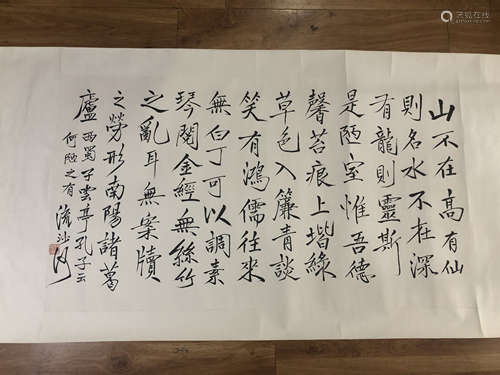 山不在高有仙
則名水不在深
有龍則靈斯
是陋室惟吾德
馨苔痕上堦綠
草色入簾青談
笑有鴻儒往來
無白丁可以調素
琴閱金經無絲竹
之亂耳無案牘
之勞形南陽諸葛
廬西蜀子雲亭孔子云
何陋之有
流沙河